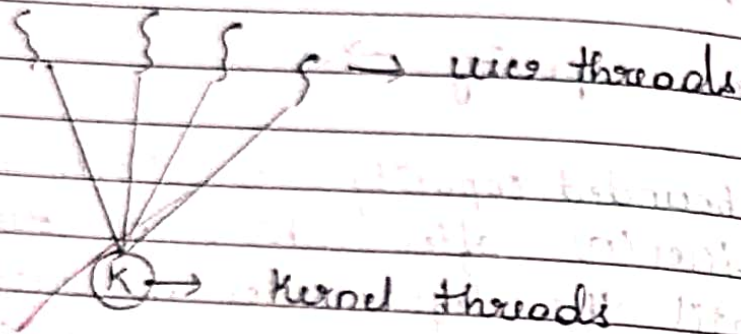 → user threads
K → Kernel threads